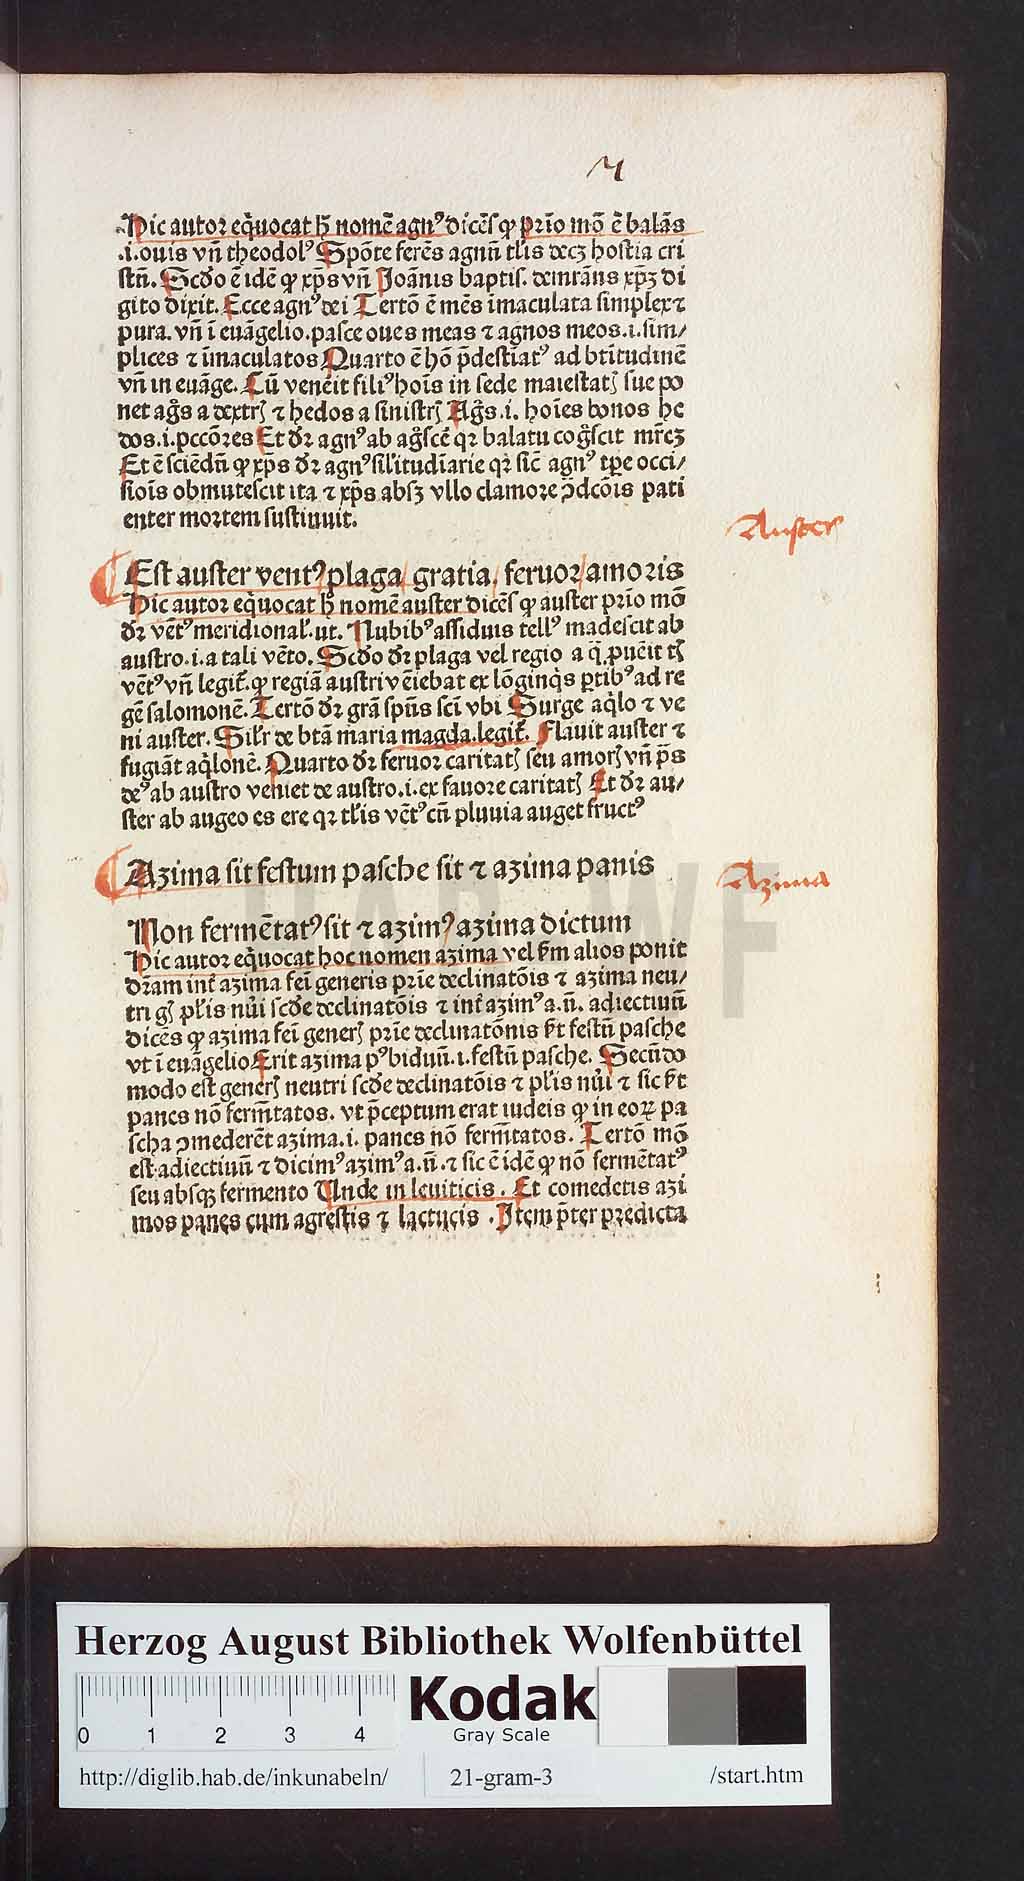 Hic autor eq̇uocat h̄ nomē agnꝰ dicēs ꝙ prīo mō ē balās
.i. ouis vn̄ theodolꝰ Spōte ferēs agnū tl̄is decꝫ hostia cri
stn̄. Scd̄o ē idē ꝙ xp̄s vn̄ Joānis baptis. demr̄ans xpꝫ di
gito dixit. Ecce agnꝰ dei Tertō ē mēs īmaculata simplex ⁊
pura. vn̄ ī euāgelio. pasce oues meas ⁊ agnos meos .i. sim/
plices ⁊ īmaculatos Quarto ē hō p̄destiatꝰ ad btītudinē
vn̄ in euāge. Cū venerit filiꝰ hoīs in sede maiestatꝭ sue po
net ag̊s a dextrꝭ ⁊ hedos a sinistrꝭ Ag̊s .i. hoīes bonos he
dos .i. pccōres Et dr̄ agnꝰ ab ag̊scē qꝛ balatu cog̊scit mr̄eꝫ
Et ē sciēdn̄ ꝙ xp̄s dr̄ agnꝰ silitudīarie qꝛ sic̄ agnꝰ tꝑe occi/
siois obmutescit ita ⁊ xp̄s absqꝫ vllo clamore ꝯdcōis pati
enter mortem sustinuit.
Auster
Est auster ventꝰ plaga / gratia / feruor / amoris
Hic autor eq̇uocat h̄ nomē auster dicēs ꝙ auster prīo mō
dr̄ vētꝰ meridional̄. ut. Nubibꝰ assiduis tellꝰ madescit ab
austro .i. a tali vēto. Scd̄o dr̄ plaga vel regio a q̄ ꝓuēit tl̄
vētꝰ vn̄ legit̄. ꝙ regiā austri vēiebat ex lōginq̇s ꝑtibꝰ ad re
gē salomonē. Tertō dr̄ grā spūs sci vbi Surge aq̇lo ⁊ ve
ni auster. Sil̄r de btā maria magda. legit̄. Flauit auster ⁊
fugiāt aq̇lonē. Quarto dr̄ feruor caritatꝭ seu amorꝭ vn̄ p̄s
deꝰ ab austro veniet de austro .i. ex fauore caritatꝭ Et dr̄ au/
ster ab augeo es ere qꝛ tl̄is vētꝰ cū pluuia auget fructꝰ
Azima sit festum pasche sit ⁊ azima panis
Azima
Non fermētatꝰ sit ⁊ azimꝰ azima dictum
Hic autor eq̇uocat hoc nomen azima vel s̄m alios ponit
dr̄am int̄ azima fei generis prīe declinatōis ⁊ azima neu/
tri gꝭ pl̄is nūi scd̄e declinatōis ⁊ int̄ azimꝰ a. ū. adiectiuū
dicēs ꝙ azima fei generꝭ prīe declinatōnis ē festū pasche
vt ī euāgelio Erit azima pꝰ biduū .i. festū pasche. Secūdo
modo est generꝭ neutri scd̄e declinatōis ⁊ pl̄is nūi ⁊ sic ē
panes nō ferm̄tatos. vt p̄ceptum erat iudeis ꝙ in eoꝝ pa
scha ꝯmederēt azima .i. panes nō ferm̄tatos. Tertō mō
est adiectiuū ⁊ dicimꝰ azimꝰ a. ū. ⁊ sic ē idē ꝙ nō fermētatꝰ
seu absqꝫ fermento Unde in leuiticis. Et comedetis azi
mos panes cum agrestis ⁊ lactucis. Item p̄ter predicta
Herzog August Bibliothek Wolfenbüttel
Kodak
Gray Scale
0 1 2 3 4
http://diglib.hab.de/inkunabeln/ 21-gram-3 /start.htm
HAB WF